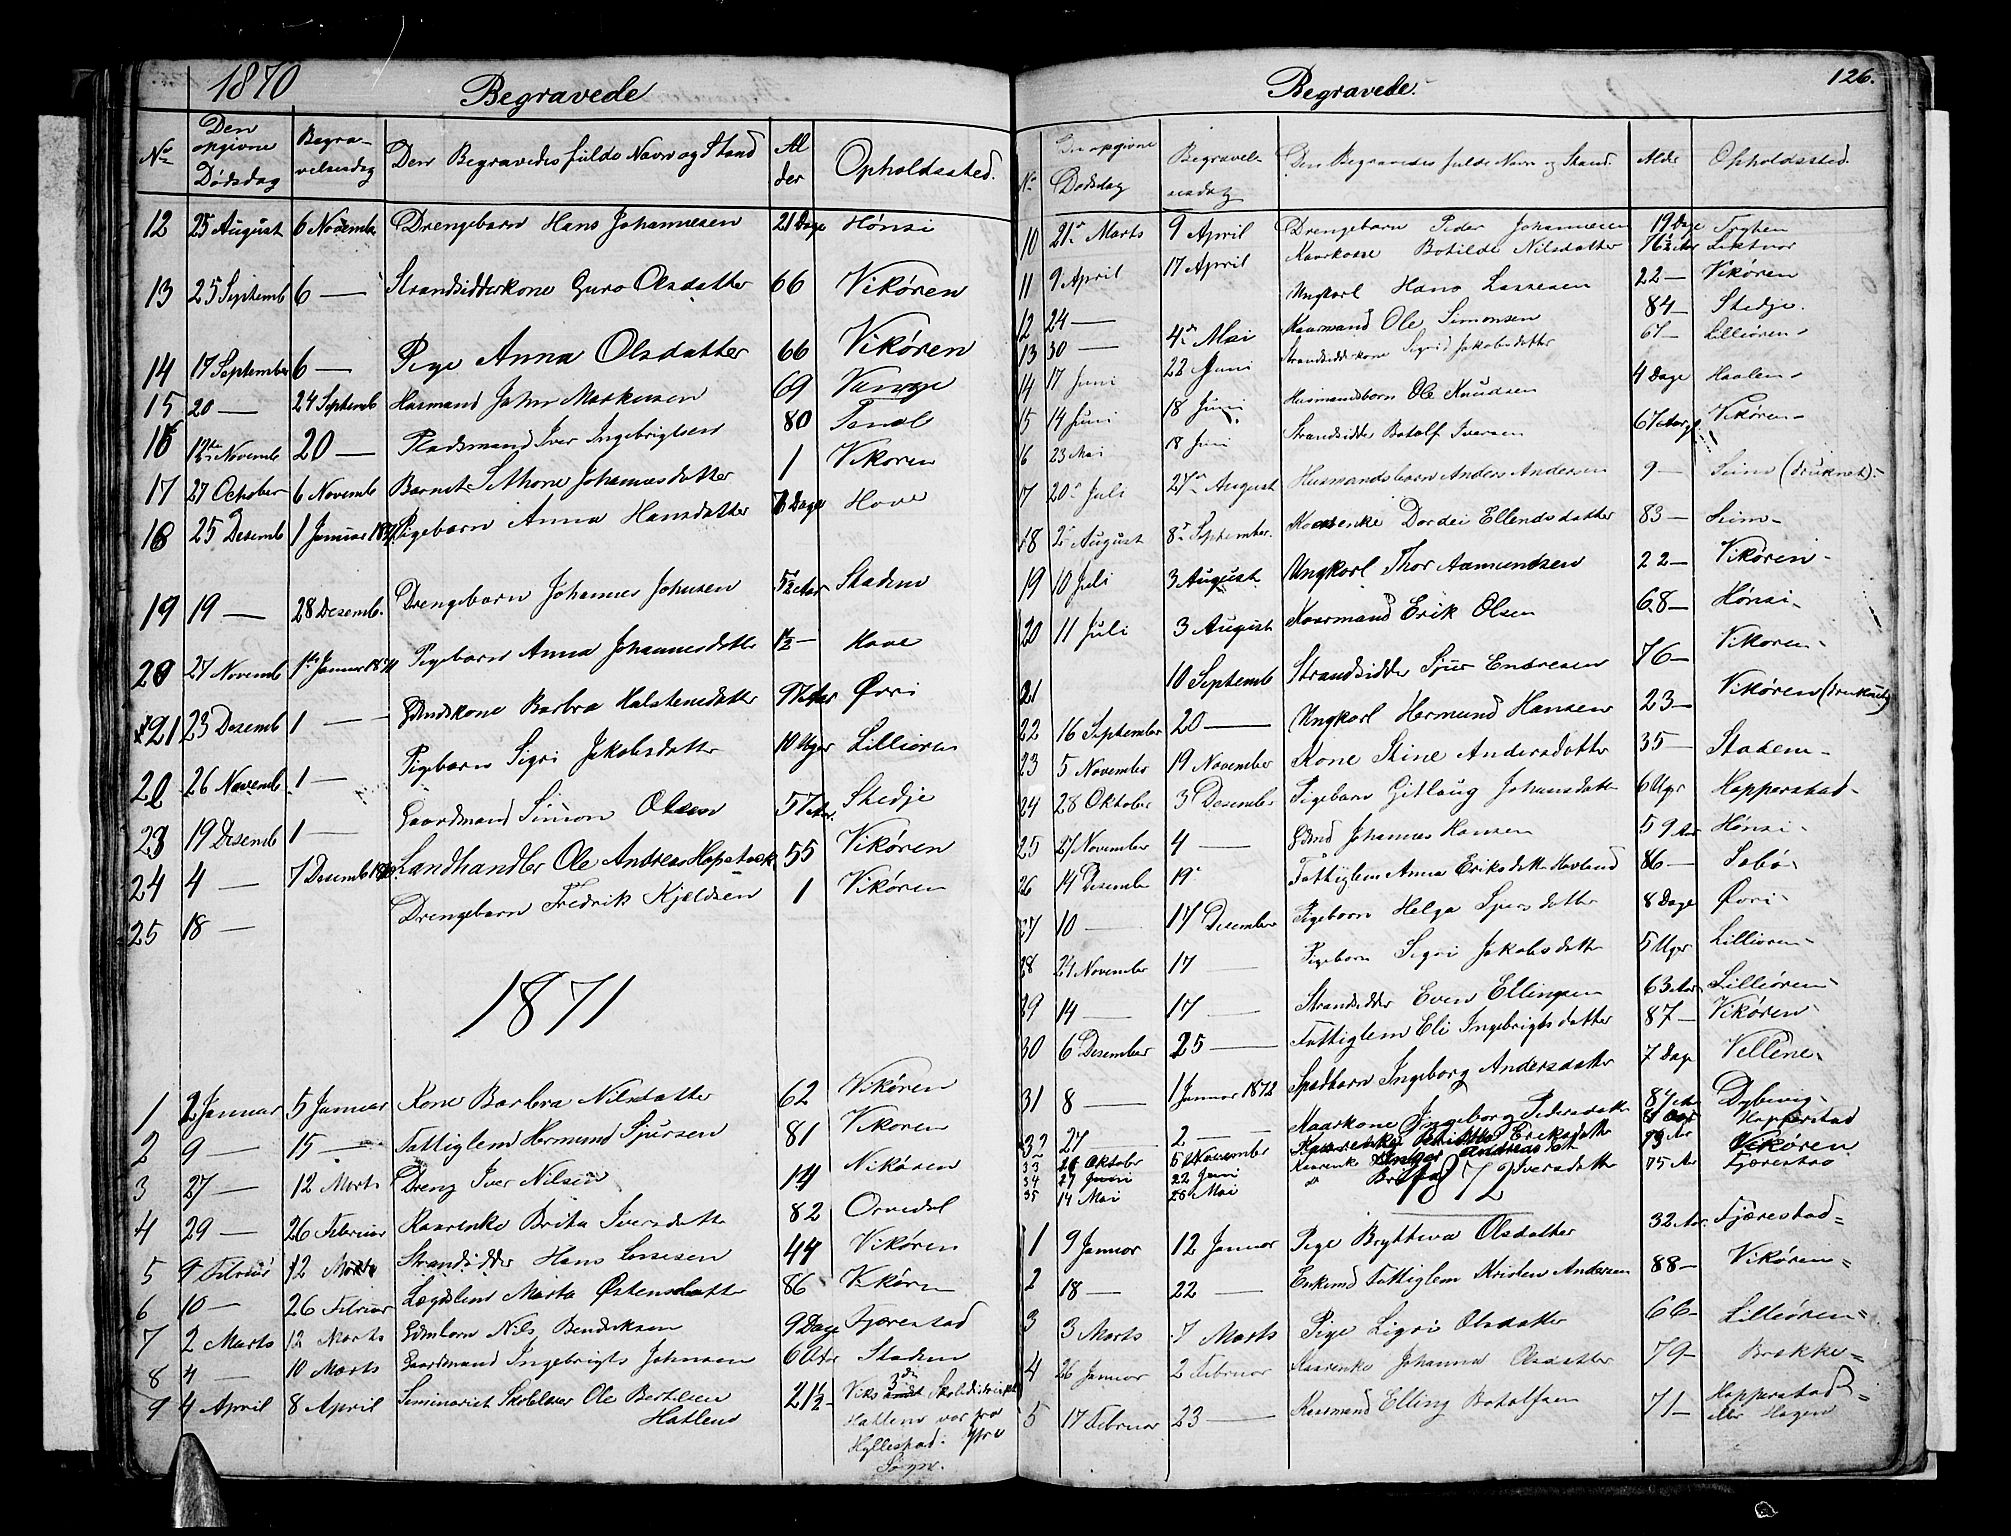 1870 Begravede
No Den opgivne Dødsdag Begravelsesdag Den Begravedes fulde Navn og Stand Alder Opholdssted.
12 25 August 6 Novemb Drengebarn Hans Johannesen 21 Dage Hønsi
13 25 Septemb 6 — Strandsidderkone Guro Olsdatter 66 Vikøren
14 17 September 6 — Pige Anna Olsdatter 66 Vikøren
15 20 — 24 Septemb Husmand John Markusen 69
16 12te Novemb 20 — Pladsmand Iver Ingebrigtsen 80
17 27 October 6 Novemb Barnet Sethone Johannesdatter 1 Vikøren
18 25 Desemb 1 Januar 1871 Pigebarn Anna Hansdatter 7 Dage Hove
19 19 — 28 Desemb. Drengebarn Johannes Johnsen 5½ Aar Stadem
20 27 Novemb 1ste Januar 1871 Pigebarn Anna Johannesdatter 1½ — Hove
21 23 Desemb 1 — Edmdskone Barbra Halstensdatter Øvri
22 26 Novemb 1 — Pigebarn Sigri Jakobsdatter 10 Uger Lilliøren
23 19 Desemb 1 — Gaardmand Simon Olsen Stedje
24 4 — 7 Desemb 1870 Landhandler Ole Andreas Hopstock 55 Vikøren
25 18 — Drengebarn Fredrik Kjeldsen 1 Vikøren
1871
1 2 Januar 5 Januar Kone Barbra Nilsdatter 62 Vikøren
2 9 — 15 — Fattiglem Hermund Sjursen 81 Vikøren
3 27 — 12 Marts Dreng Iver Nilsen 14 Vikøren
4 29 — 26 Februar Kaarenke Brita Iversdatter 82 Orvedal
5 9 Februar 12 Marts Strandsidder Hans Lassesen 44 Vikøren
6 10 — 26 Februar Lægdslem Marta Østensdatter 86 Vikøren
7 2 Marts 12 Marts Edmbarn Nils Bendiksen 9 Dage Fjærestad
8 4 — 10 Marts Gaardmand Ingebrigt Johnsen 60 Aar Stadem
9 4 April 8 April Seminarist Skolelærer Ole Bertelsen 21½ — Viks 3die Skoledistrikt
Hatlem Hatlem var fra
Hyllestad i Ytre
Sogn.
Begravede. 126.
No Den opgivne Dødsdag Begravelsesdag Den Begravedes fulde Navn og Stand. Alder Opholdssted.
10 21de Marts 9 April Drengebarn Peder Johannesen 19 Dage Tryhen
11 9 April 17 April Kaarkone Botilde Nilsdatter 76½ Aar
12 24 — Ungkarl Hans Lassesen 22 — Vikøren
13 30 — 4de Mai Kaarmand Ole Simonsen 84 — Stedje.
14 17 Juni 22 Juni Strandsidderkone Sigrid Jakobsdatter 67 — Lilliøren
15 14 Juni 18 Juni Husmandsbarn Ole Knudsen 4 Dage Haalen
16 23 Mai 18 Juni Strandsidder Botolf Iversen 67 Aar Vikøren
17 20de Juli 27de August Husmandsbarn Anders Andersen 9 — Seim (druknet)
18 2 August 8de September. Kaarenke Dordei Ellendsdatter 83 — Seim
19 10 Juli 3 August Ungkarl Thor Aamundsen 22 — Vikøren
20 11 Juli 3 August Kaarmand Erik Olsen 68 — Hønsi
21 10 Septemb Strandsidder Sjur Endresen 76 — Vikøren
22 16 September 20 — Ungkarl Hermund Hansen 23 — Vikøren (druknet)
23 5 November 19 November Kone Stine Andersdatter 35 — Stadem
24 28 Oktober 3 Desember Pigebarn Gitlaug Johansdatter 6 Uger Hopperstad
25 27 November 4 — Gdmd Johannes Hansen 59 Aar Hønsi
26 14 Desember 19 Fattiglem Anna Eriksdatter Hovland 86 — Sæbø
27 10 — 17 Desember Pigebarn Helga Sjursdatter 8 Dage Øvri
28 24 November 17 — Pigebarn Sigri Jakobsdatter 5 Uger Lilliøren
29 14 — 17 — Strandsidder Even Ellingsen 63 Aar Lilliøren
30 6 Desember 25 — Fattiglem Eli Ingebrigtsdatter 87 — Vikøren
31 8 — 1 Januar 1872 Spædbarn Ingeborg Andersdatter 7 Dage Vellene
32 27 — 2 — Kaarkone Ingeborg Pedersdatter Dybevig
33 26 Oktober 5 November Kaarenke Eriksdatter Hopperstad
34 27 Juni 22 Juni Kaarenke Inger Andreasdot 73 Aar Vikøren
35 14 Mai 28 Mai Iversdatter 75 Aar Fjærestad
1872
1 9 Januar 12 Januar Pige Brytteva Olsdatter 32 Aar Fjærestad
2 18 — 22 — Enkemd Fattiglem Kristen Andersen 88 — Vikøren
3 3 Marts 7 Marts Pige Sigri Olsdatter 66 — Lilliøren
4 26 Januar 2 Februar Kaarenke Johanna Olsdatter 79 — Brække
5 17 Februar 23 — Kaarmand Elling Botolfsen 71 — Hopperstad
eller Hagen